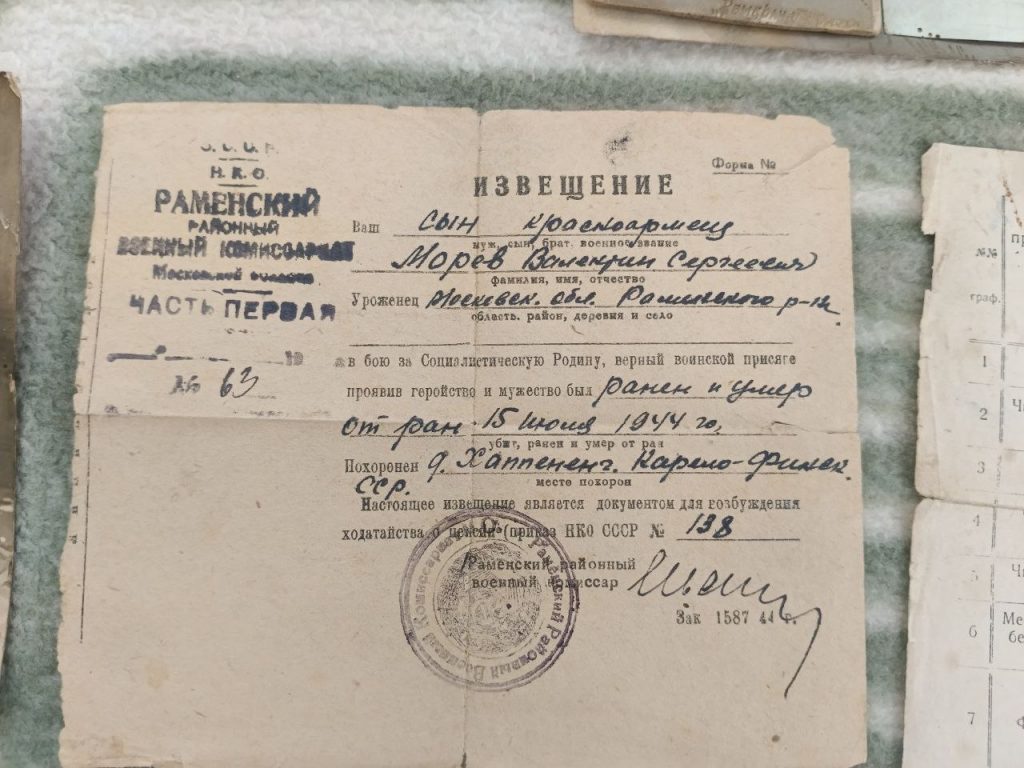 С.С.С.Р.
Н.К.О.
РАМЕНСКИЙ
РАЙОННЫЙ
ВОЕННЫЙ КОМИССАРИАТ
Московской области
ЧАСТЬ ПЕРВАЯ
19
№ 63
Форма №
ИЗВЕЩЕНИЕ
Ваш сын красноармеец
муж, сын, брат, военное звание
Морев Валентин Сергеевич
фамилия, имя, отчество
Уроженец Московск. обл. Раменского р-на
область, район, деревня и село
в бою за Социалистическую Родину, верный воинской присяге
проявив геройство и мужество был ранен и умер
от ран 15 июля 1944 го,
убит, ранен и умер от ран
Похоронен д. Карело-Финск.
ССР.
место похорон
Настоящее извещение является документом для возбуждения
ходатайства о пенсии (приказ НКО СССР № 138
Раменский районный
военный комиссар
Зак 1587 44 г.
Раменский Районный Военный Комиссариат
№№
граф.
1
2
3
4
5
6
7